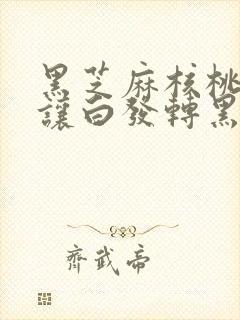 黑芝麻核桃
讓白發轉黑
齊武帝